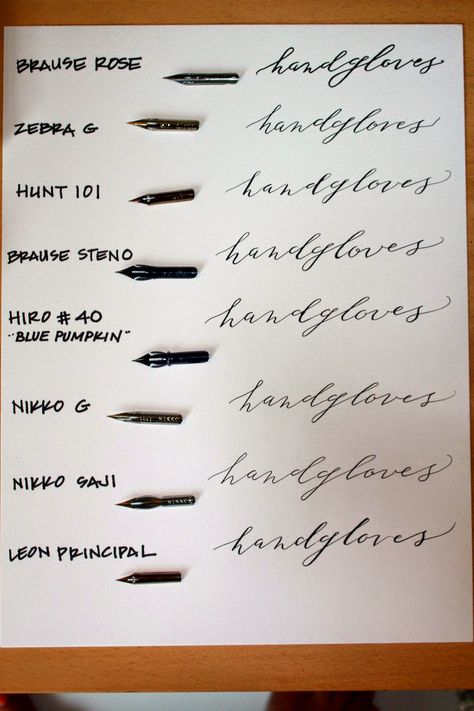 BRAUSE ROSE handgloves
ZEBRA G handgloves
HUNT 101 handgloves
BRAUSE STENO handgloves
HIRO #40 handgloves
"BLUE PUMPKIN"
NIKKO G handgloves
NIKKO
NIKKO SAJI handgloves
NIKKO
LEON PRINCIPAL handgloves